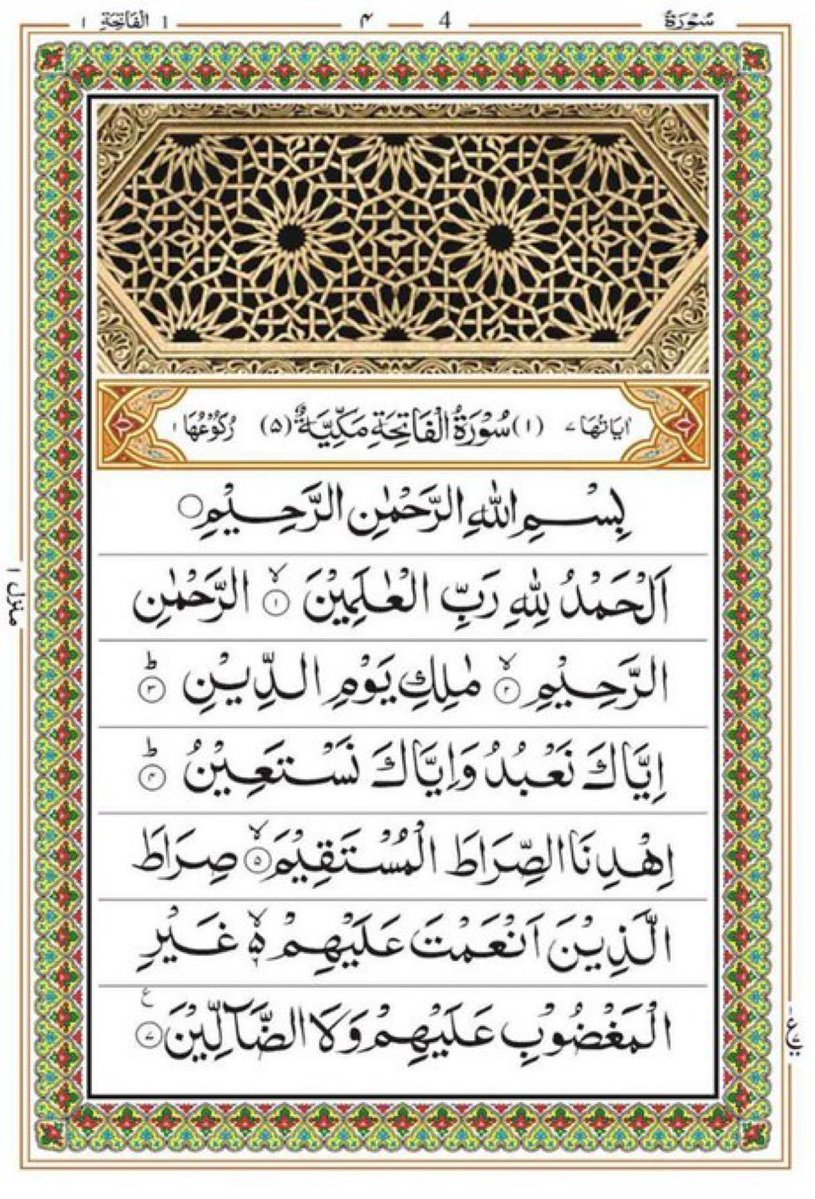 سُوْرَةُ 4 ۴ الْفَاتِحَةِ ١
اٰيَاتُهَا ٧ (١) سُوْرَةُ الْفَاتِحَةِ مَكِّيَّةٌ (٥) رُكُوْعُهَا ١
بِسْمِ اللّٰهِ الرَّحْمٰنِ الرَّحِيْمِ ○
اَلْحَمْدُ لِلّٰهِ رَبِّ الْعٰلَمِيْنَ ۙ﴿١﴾ الرَّحْمٰنِ
الرَّحِيْمِ ۙ﴿٢﴾ مٰلِكِ يَوْمِ الدِّيْنِ ؕ﴿٣﴾
اِيَّاكَ نَعْبُدُ وَاِيَّاكَ نَسْتَعِيْنُ ؕ﴿۴﴾
اِهْدِنَا الصِّرَاطَ الْمُسْتَقِيْمَ ۙ﴿٥﴾ صِرَاطَ
الَّذِيْنَ اَنْعَمْتَ عَلَيْهِمْ ۙ۵ غَيْرِ
الْمَغْضُوْبِ عَلَيْهِمْ وَلَا الضَّآلِّيْنَ ﴿٧﴾ ع
منزل ١